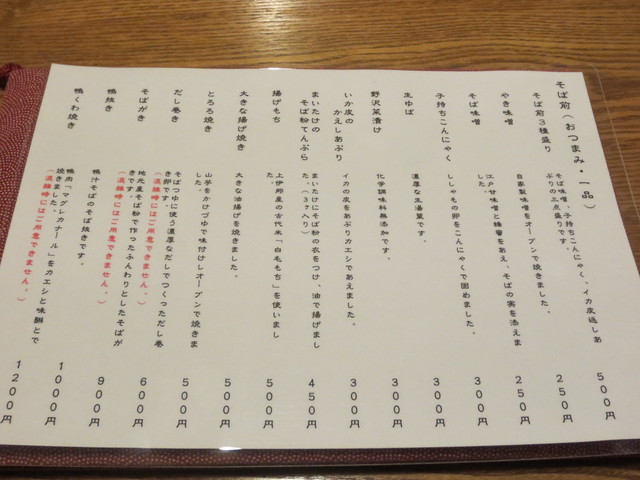 そば前(おつまみ・一品)
そば前3種盛り
そば味噌、子持ちこんにゃく、イカ皮返しあ
ぶりの三点盛りです。
500円
やき味噌
自家製味噌をオーブンで焼きました。
250円
そば味噌
江戸甘味噌と蜂蜜をあえ、そばの実を添えま
した。
250円
子持ちこんにゃく
ししゃもの卵をこんにゃくで固めました。
300円
生ゆば
濃厚な生湯葉です。
300円
野沢菜漬け
化学調味料無添加です。
300円
いか皮の
かえしあぶり
イカの皮をあぶりカエシであえました。
300円
まいたけの
そば粉てんぷら
まいたけにそば粉の衣をつけ、油で揚げまし
た。(3ケ入り)
450円
揚げもち
上伊那産の古代米「白毛もち」を使いまし
た。
500円
大きな揚げ焼き
大きな油揚げを焼きました。
500円
とろろ焼き
山芋をかけづゆで味付けしオーブンで焼きま
した。
500円
だし巻
そばつゆに使う濃厚なだしでつくっただし巻
き卵です。
(混雑時にはご用意できません。)
600円
そばがき
地元産そば粉で作ったふんわりとしたそばが
きです。
(混雑時にはご用意できません。)
900円
鴨抜き
鴨汁そばのそば抜きです。
1000円
鴨くわ焼き
鴨肉「マグレカナール」をカエシと味醂とで
焼きました。
(混雑時にはご用意できません。)
1200円